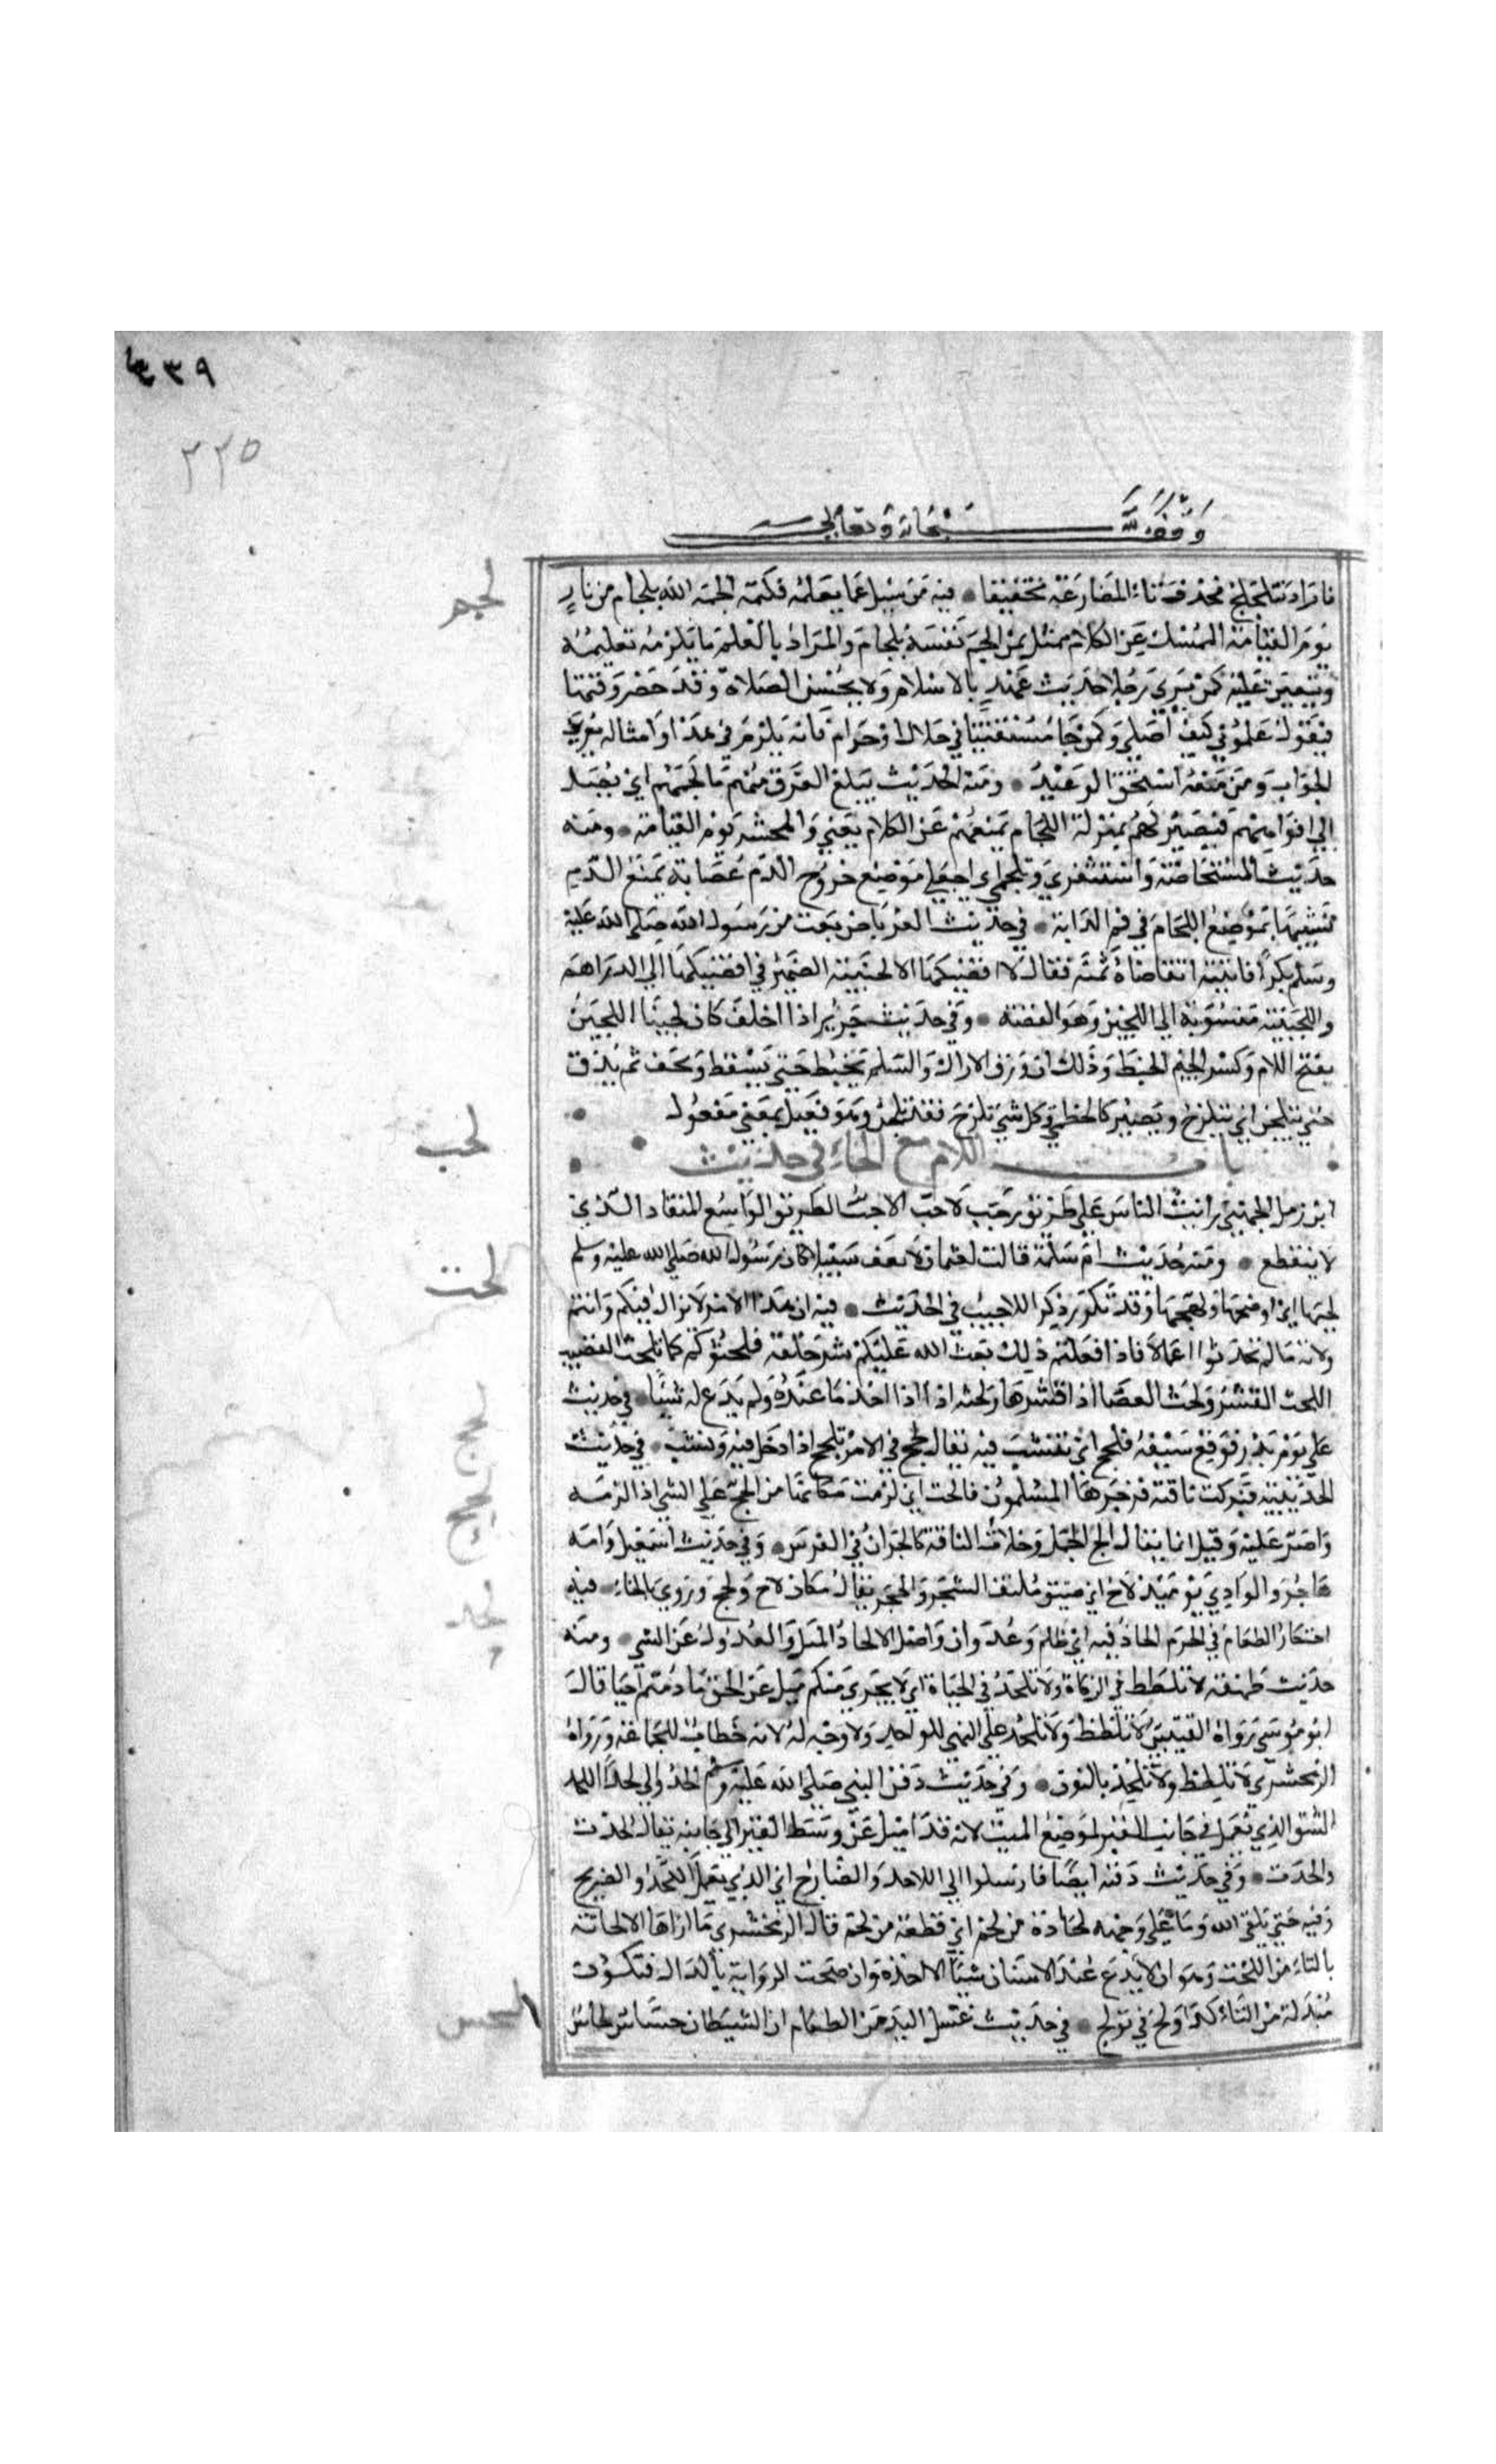 ٤٣٩
٢٢٥
وقف لله سبحانه وتعالى
فاراد تتلجلج فحذف تاء المضارعة تخفيفا • فيه من سيل عما يعلمه فكتمه الجمه الله بلجام من نار
لجم
يوم القيامة الممسك عن الكلام ممثل بمن الجم نفسه بلجام والمراد بالعلم ما يلزمه تعليمه
ويتعين عليه كمن يرى رجلا حديث عهد بالاسلام ولا يحسن الصلاة وقد حضر وقتها
فيقول علموني كيف اصلي وكمن جا مستفتيا في حلال او حرام فانه يلزم في هذا وامثاله تعريف
الجواب ومن منعه استحق الوعيد • ومنه الحديث يبلغ العرق منهم ما يلجمهم اي يصل
الي افواههم فيصير لهم بمنزلة اللجام يمنعهم عن الكلام يعني والمحشر يوم القيامة • ومنه
حديث المستحاضة واستثفري وتلجمي اي اجعلي موضع خروج الدم عصابة تمنع الدم
تشبيها بموضع اللجام في فم الدابة • في حديث العرباض بعت من رسول الله صلى الله عليه
وسلم بكرا فاتيته اتقاضاه ثمنه فقال لا اقضيكها الا لجينية الضمير في اقضيكها الي الدراهم
واللجينية منسوبة الي اللجين وهو الفضة • وفي حديث جرير اذا اخلف كان لجينا اللجين
بفتح اللام وكسر الجيم الخبط وذلك ان ورق الاراك والسلم يخبط حتى يسقط ويجف ثم يدق
حتى يتلجن اي يتلزج ويصير كالخطمي وكل شي تلزج فقد تلجن وهو فعيل بمعنى مفعول
باب اللام مع الحاء في حديث
لحب
ابن زمل الجهني رايت الناس على طريق رحب لاحب اللاحب الطريق الواسع المنقاد الذي
لا ينقطع • ومنه حديث ام سلمة قالت لعثمان لا تعف سبيلا كان رسول الله صلى الله عليه وسلم
لحبها اي اوضحها ونهجها وقد تكرر ذكر اللاحب في الحديث • فيه ان هذا الامر لا يزال فيكم وانتم
لحت
ولاته مالم تحدثوا اعمالا فاذا فعلتم ذلك بعث الله عليكم شر خلقه فلحتوكم كما يلحت القضيب
اللحت القشر ولحت العصا اذا قشرها ولحته اذا اخذ ما عنده ولم يدع له شيئا • في حديث
لحج
علي يوم بدر فوقع سيفه فلحج اي نشب فيه يقال لحج في الامر يلحج اذا دخل فيه ونشب • في حديث
لحح
الحديبية فبركت ناقته فزجرها المسلمون فالحت اي لزمت مكانها من الح على الشي اذا لزمه
واصر عليه وقيل انما يقال الح الجمل وخلات الناقة كالحران في الفرس • وفي حديث اسمعيل وامه
هاجر والوادي يوميذ لاح اي ضيق ملتف الشجر والحجر يقال مكان لاح ولحح وروي بالخاء • فيه
لحد
احتكار الطعام في الحرم الحاد فيه اي ظلم وعدوان واصل الالحاد الميل والعدول عن الشي • ومنه
حديث طهفة لا تلطط في الزكاة ولا تلحد في الحياة اي لا يجري منكم ميل عن الحق ما دمتم احيا قال
ابو موسى رواه القتيبي لا تلطط ولا تلحد على النهي للواحد ولا وجه له لانه خطاب للجماعة ورواه
الزمخشري لا نلطط ولا نلحد بالنون • وفي حديث دفن النبي صلى الله عليه وسلم الحدوا لي لحدا اللحد
الشق الذي يعمل في جانب القبر لموضع الميت لانه قد اميل عن وسط القبر الي جانبه يقال لحدت
والحدت • وفي حديث دفنه ايضا فارسلوا الي اللاحد والضارح اي الذي يعمل اللحد والضريح
وفيه حتى يلقى الله وما على وجهه لحادة من لحم اي قطعة من لحم قال الزمخشري ما اراها الا لحاتة
بالتاء من اللحت وهو ان لا يدع عند الانسان شيئا الا اخذه وان صحت الرواية بالدال فتكون
مبدلة من التاء كدولج في تولج • في حديث غسل اليد من الطعام ان الشيطان حساس لحاس
لحس